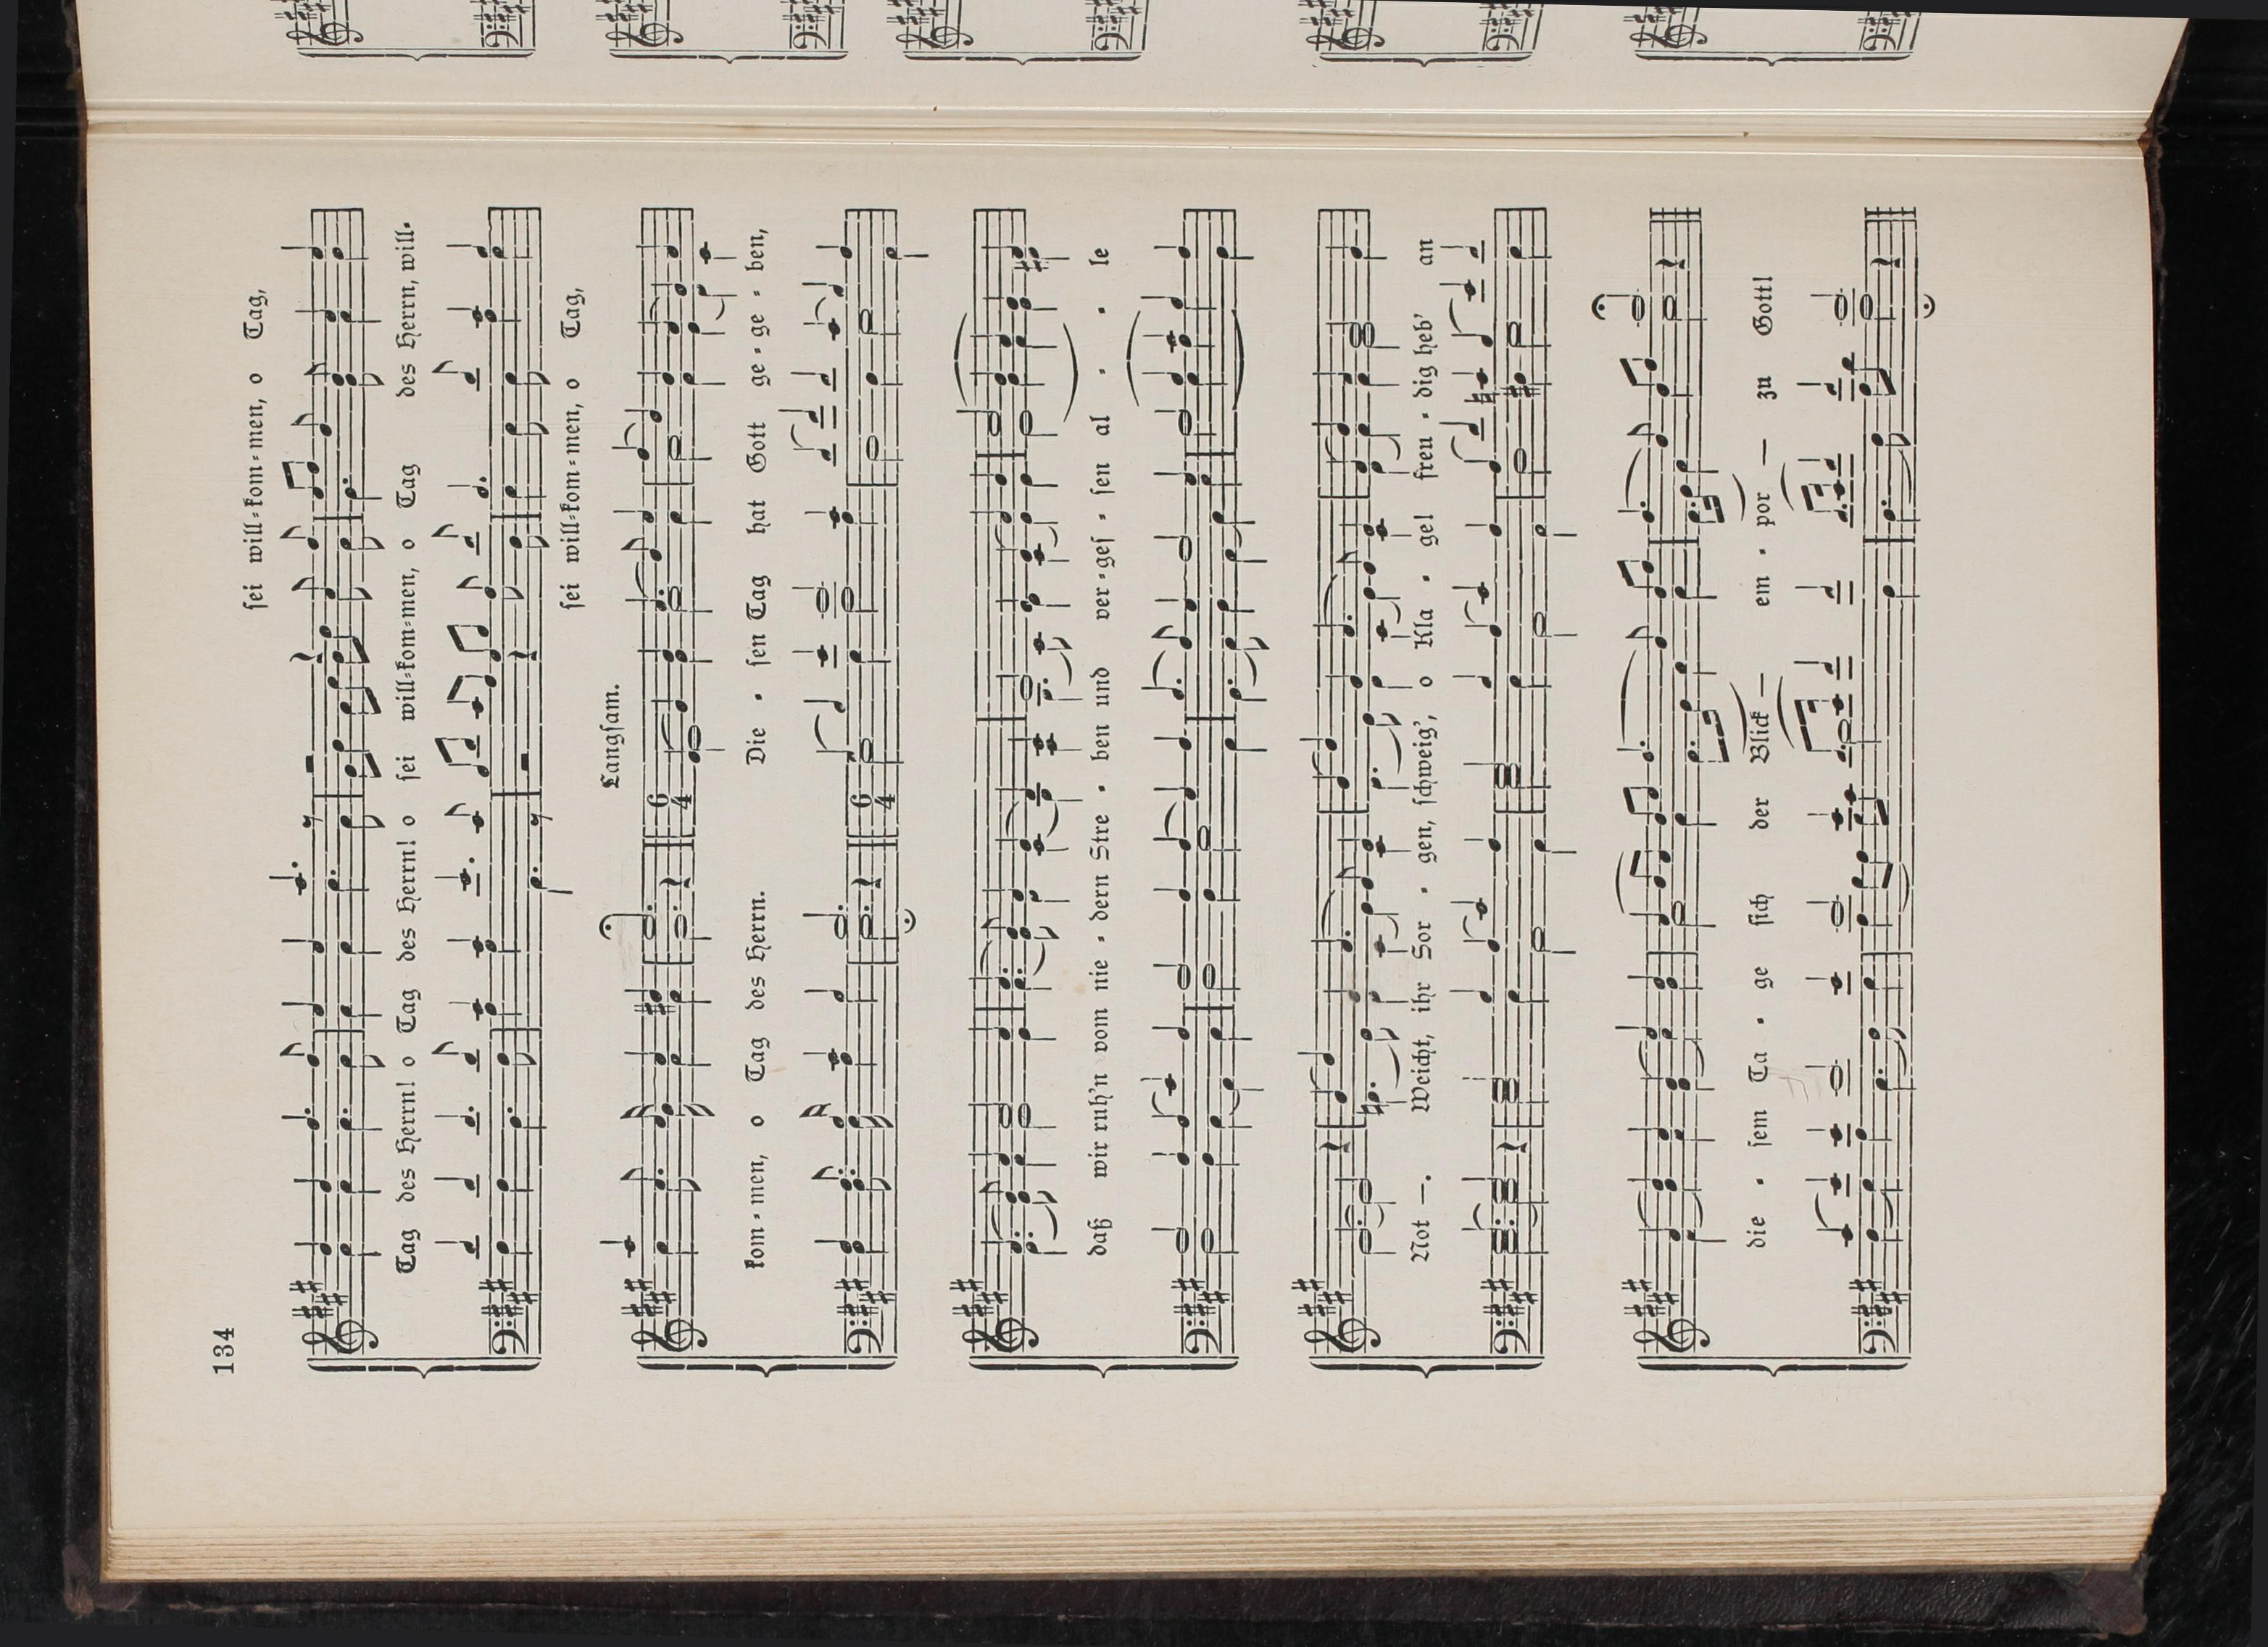 134
sei will=kom=men, o Tag,
Tag des Herrn! o Tag des Herrn! o sei will=kom=men, o Tag des Herrn, will=
sei will=kom=men, o Tag,
Langsam.
kom=men, o Tag des Herrn. Die - sen Tag hat Gott ge - ge - ben,
6 4
6 4
daß wir ruh'n vom nie - dern Stre - ben und ver - ges - sen al - - - le
Not —. Weicht, ihr Sor - gen, schweig', o Kla - gel freu - dig heb' an
die - sem Ta - ge sich der Blick — em - por — zu Gott!